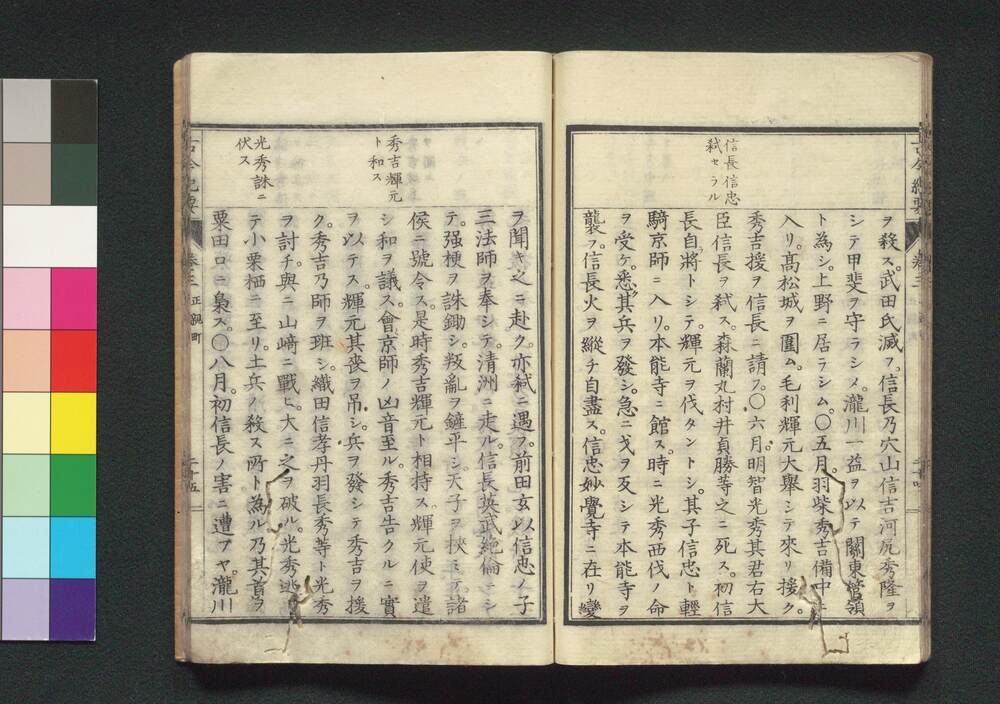 信長信忠
弑セラル
ヲ殺ス。武田氏滅フ。信長乃穴山信吉河尻秀隆ヲ
シテ甲斐ヲ守ラシメ。瀧川一益ヲ以テ關東管領
ト為シ。上野ニ居ラシム。〇五月。羽柴秀吉備中ニ
入リ。髙松城ヲ圍ム。毛利輝元大舉シテ來リ援ク。
秀吉援ヲ信長ニ請フ。〇六月。明智光秀其君右大
臣信長ヲ弑ス。森蘭丸村井貞勝等之ニ死ス。初信
長自將トシテ。輝元ヲ伐タントシ。其子信忠ト輕
騎京師ニ入リ。本能寺ニ館ス。時ニ光秀西伐ノ命
ヲ受ケ。悉其兵ヲ發シ。急ニ戈ヲ反シテ本能寺ヲ
襲フ。信長火ヲ縱チ自盡ス。信忠妙覺寺ニ在リ變
古今紀要 卷三 正親町
秀吉輝元
ト和ス
光秀誅ニ
伏ス
ヲ聞キ之ニ赴ク。亦弑ニ遇フ。前田玄以信忠ノ子
三法師ヲ奉シテ。清洲ニ走ル。信長英武絶倫ニシ
テ。强梗ヲ誅鋤シ。叛亂ヲ鏟平シ。天子ヲ挾ミテ。諸
侯ニ號令ス。是時秀吉輝元ト相持ス。輝元使ヲ遣
シ和ヲ議ス。會京師ノ凶音至ル。秀吉告クルニ實
ヲ以テス。輝元其喪ヲ吊シ。兵ヲ發シテ秀吉ヲ援
ク。秀吉乃師ヲ班シ。織田信孝丹羽長秀等ト光秀
ヲ討チ。與ニ山﨑ニ戰ヒ。大ニ之ヲ破ル。光秀逃
テ小栗栖ニ至リ。土兵ノ殺ス所ト為ル乃其首ヲ
粟田口ニ梟ス。〇八月。初信長ノ害ニ遭フヤ。瀧川